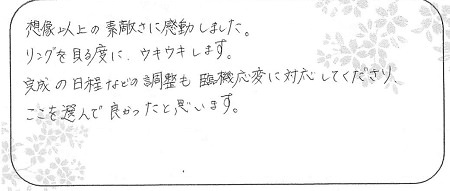 想像以上の素敵さに感動しました。
リングを見る度に、ウキウキします。
完成の日程などの調整も臨機応変に対応してくださり、
ここを選んで良かったと思います。